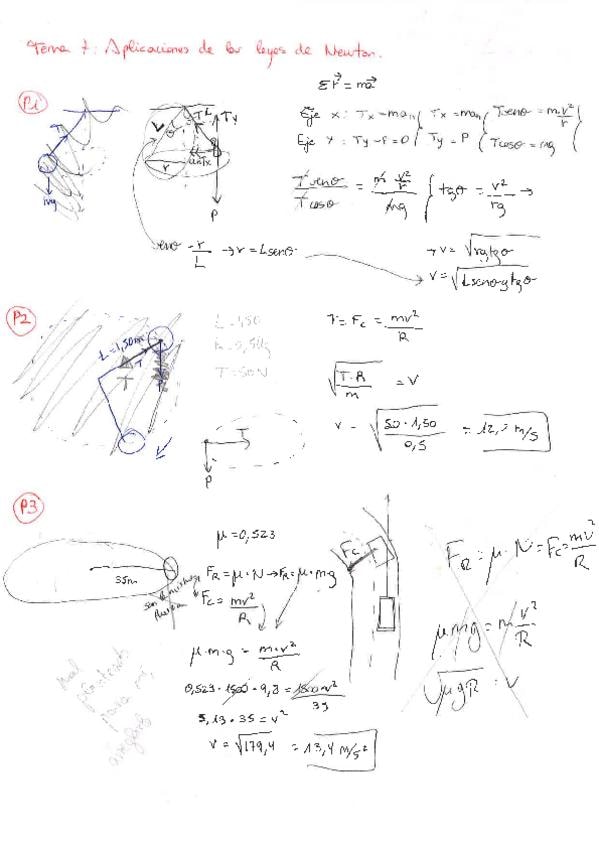 Tema 7: Aplicaciones de las leyes de Newton.
P1
Σ F⃗ = ma⃗
Eje x: Tx = man { Tx = man { Tsenθ = m v²/r
Eje Y: Ty - P = 0 { Ty = P { Tcosθ = mg
L
T
Ty
Tx
r
P
mg
Tsenθ/Tcosθ = m v²/r / mg { tgθ = v²/rg →
senθ = r/L → r = Lsenθ
→ v = √rgtgθ
→ v = √Lsenθgtgθ
P2
L = 1,50m
T
L = 1,50
T = 50N
T
P
T = Fc = mv²/R
√T·R/m = v
v = √50·1,50/0,5 = 12,2 m/s
P3
35m
μ = 0,523
FR = μ·N → FR = μ·mg
Fc = mv²/R
μ·m·g = m·v²/R
0,523·1500·9,8 = 1500v²/35
5,13·35 = v²
v = √179,4 = 13,4 m/s²
Fc
FR = μ·N = Fc = mv²/R
μmg = m v²/R
√μgR = v
Mal